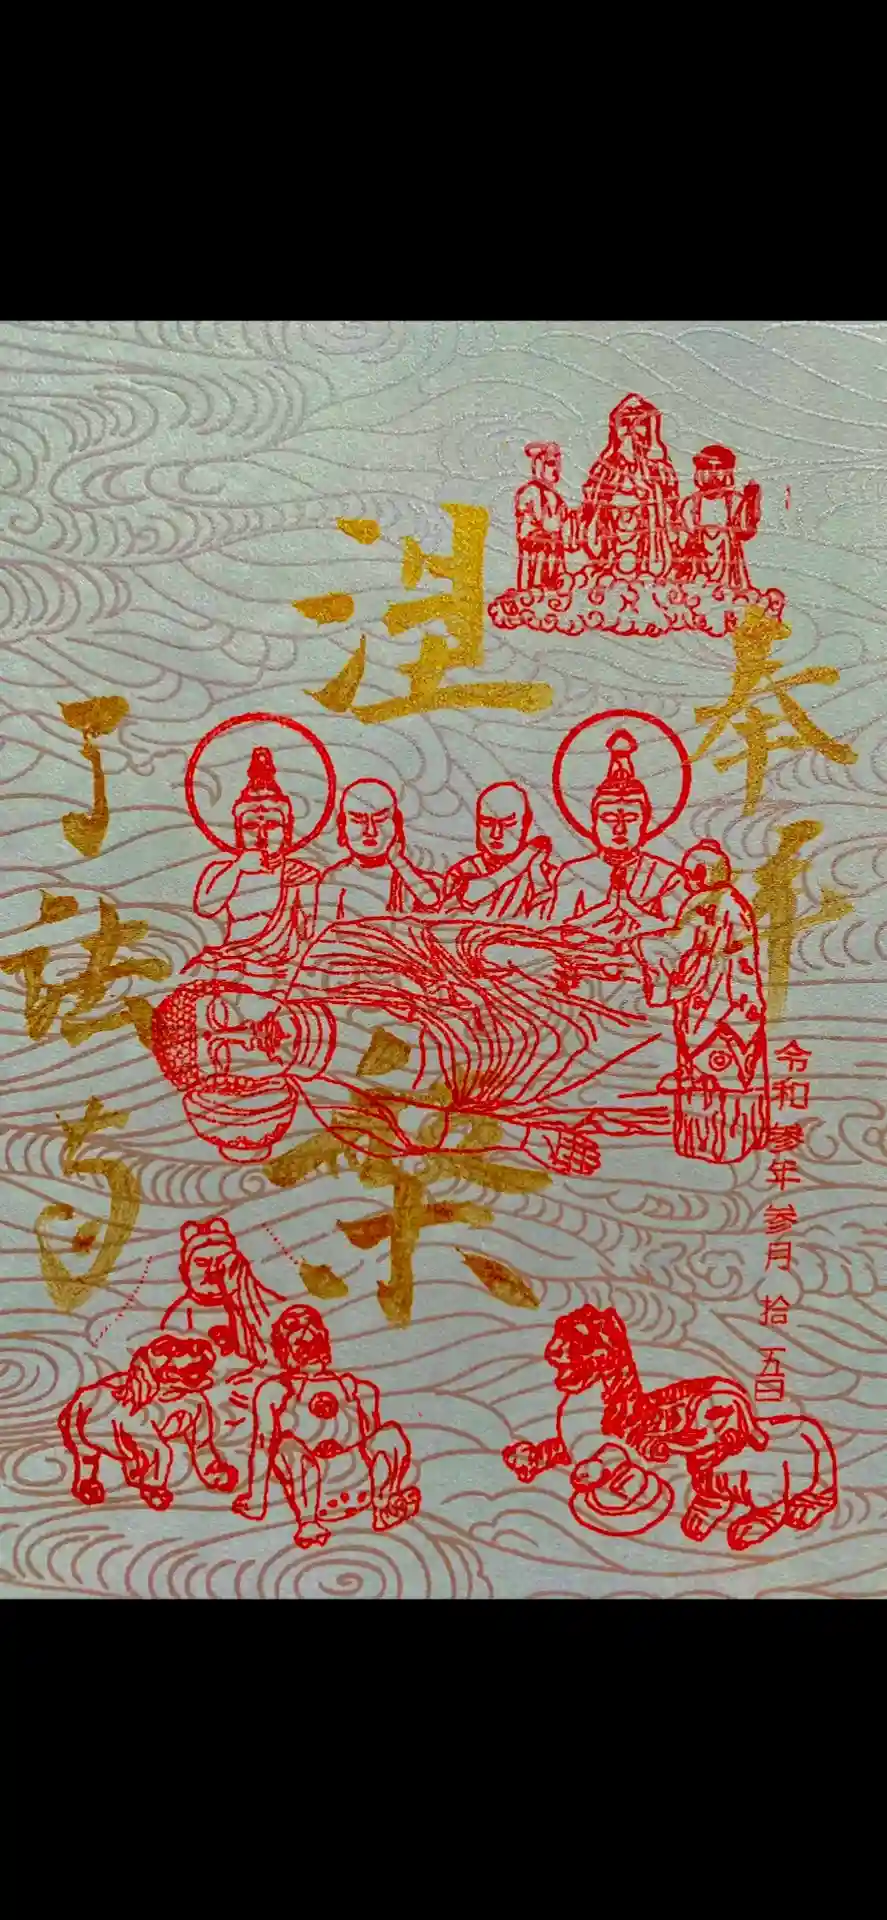 奉拝
令和参年参月拾五日
涅槃
了法寺